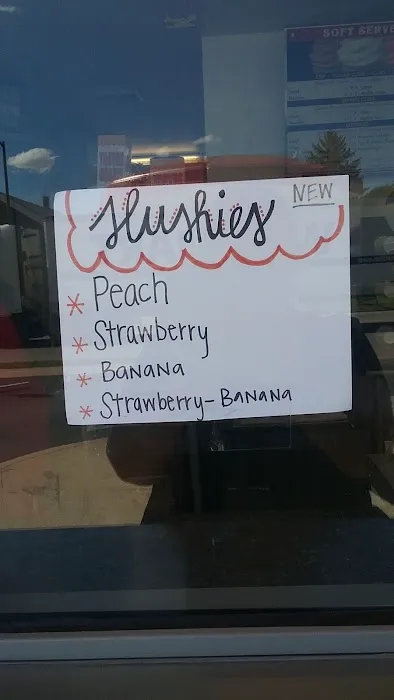 SOFT SERVE
Slushies
NEW
* Peach
* Strawberry
* BANANA
* Strawberry-BANANA